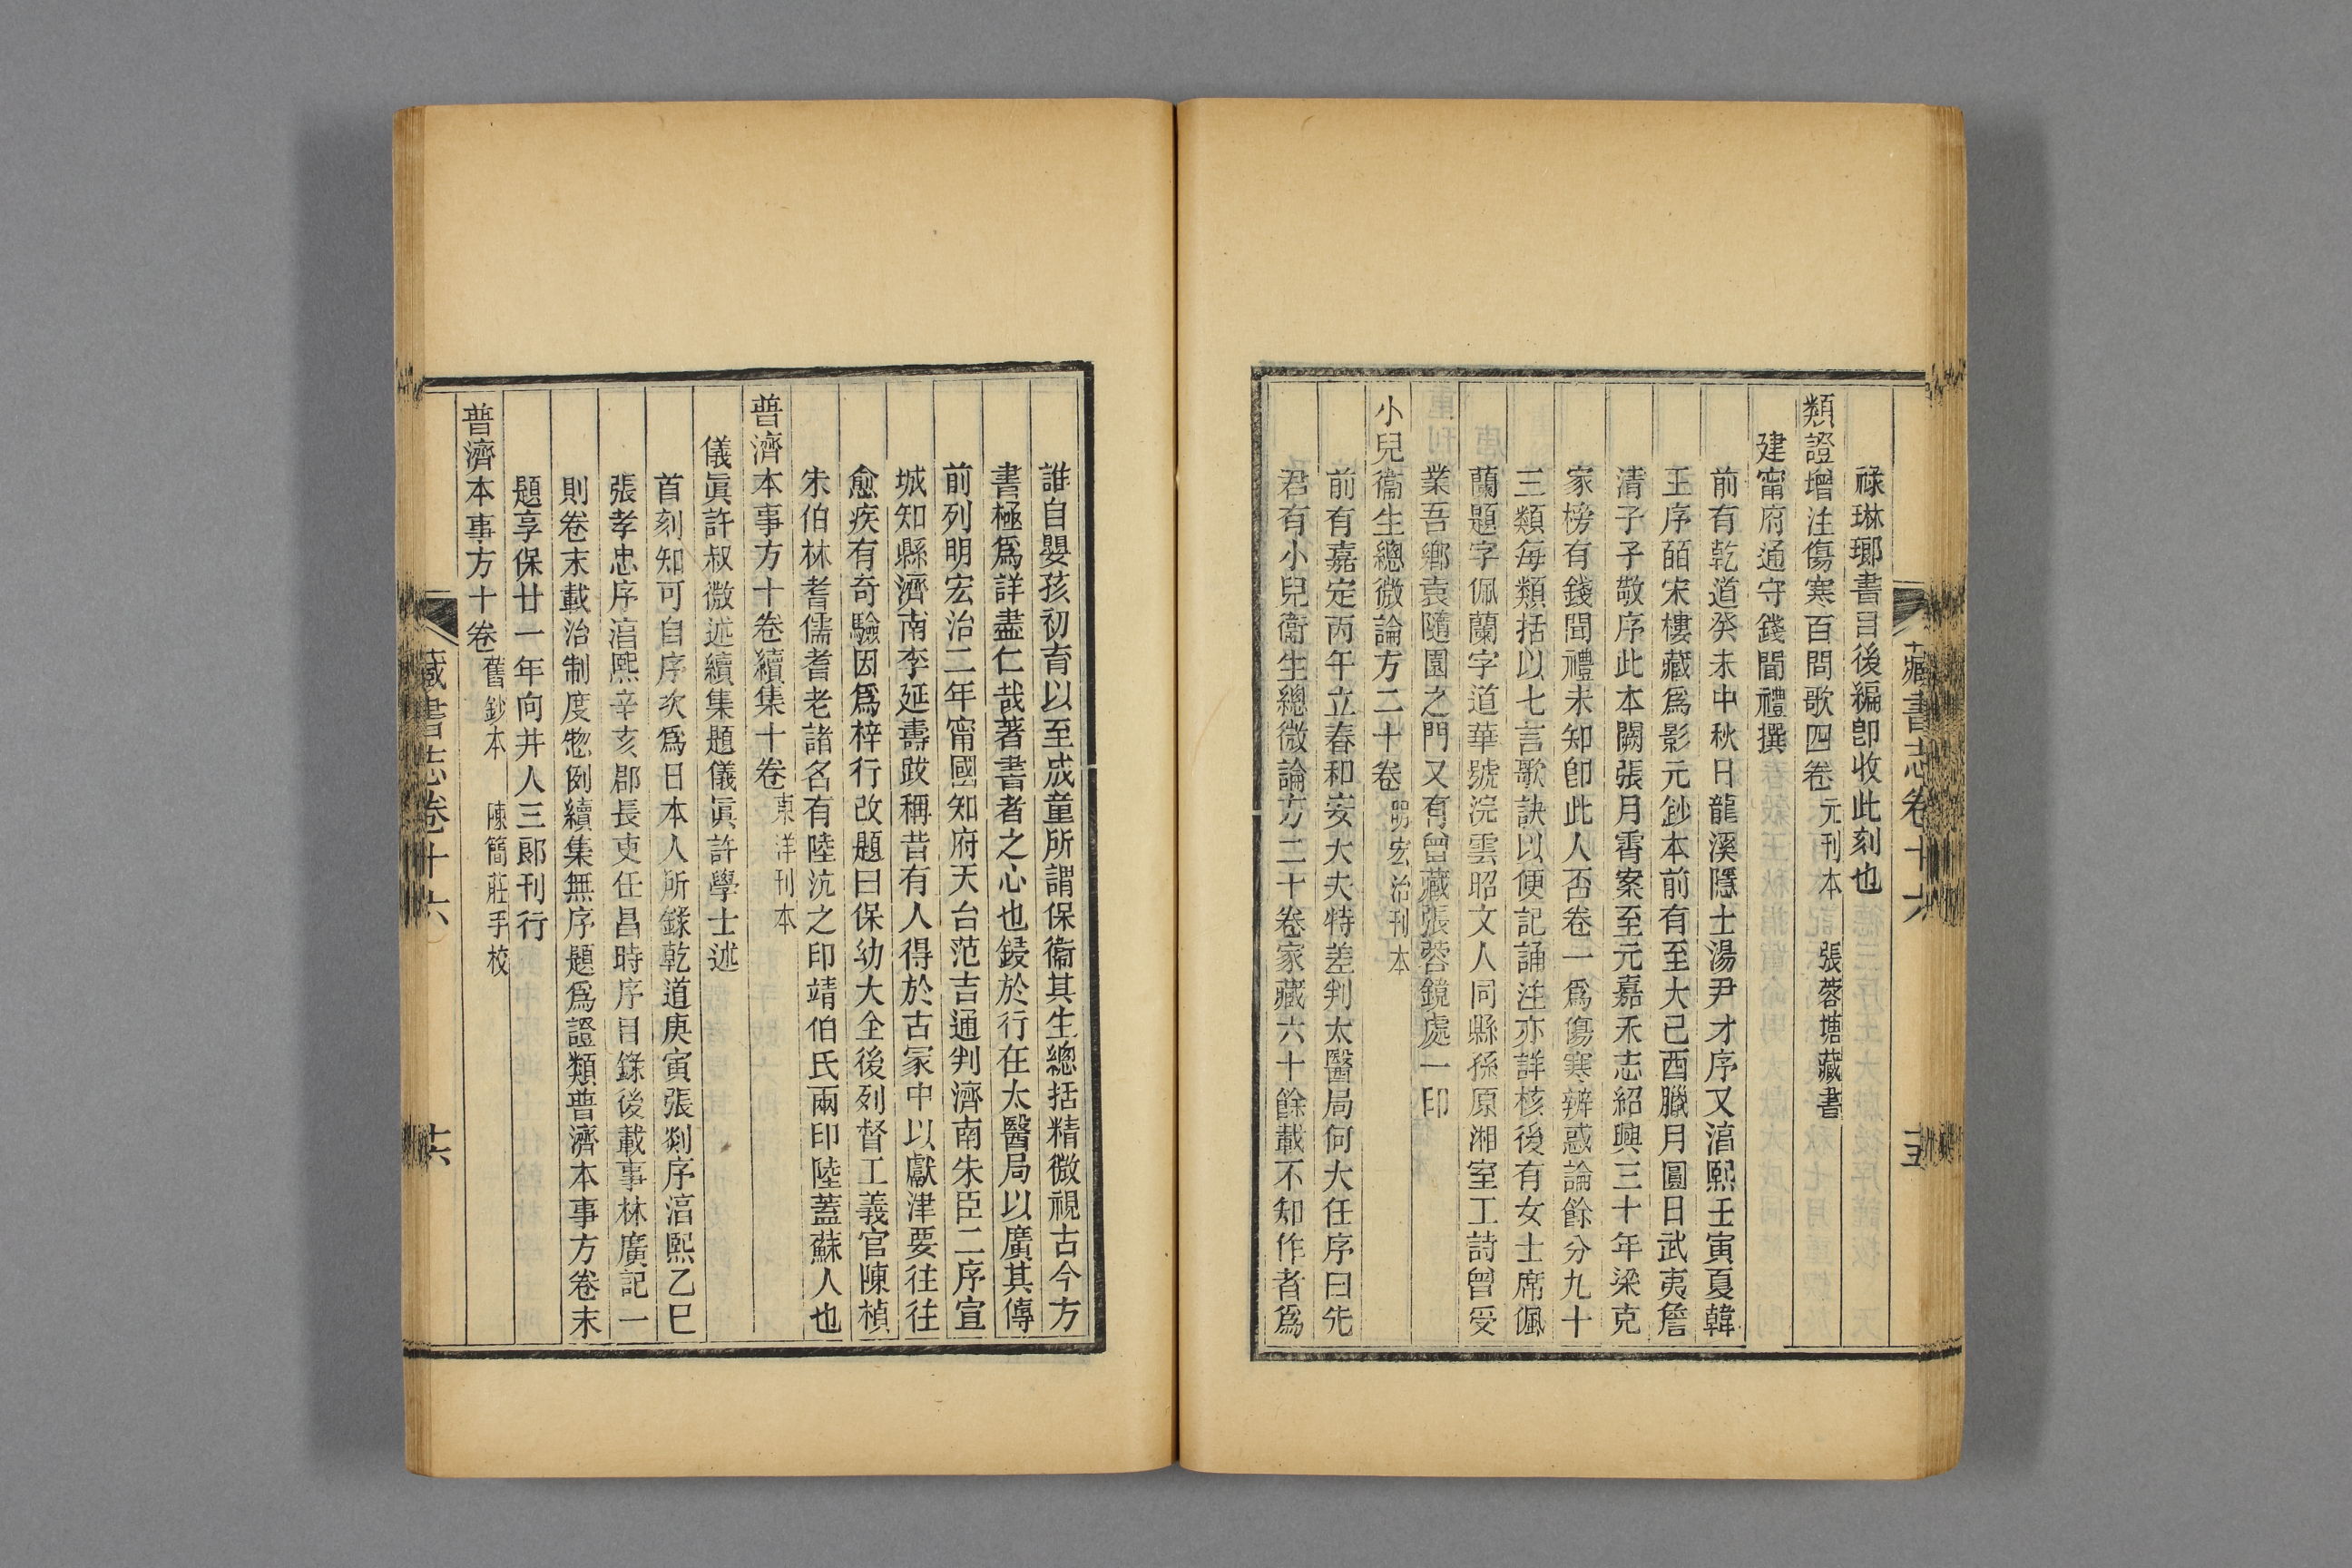 祿琳瑯書目後編卽收此刻也
類證增注傷寒百問歌四卷 元刊本 張蓉塘藏書
建甯府通守錢聞禮撰
前有乾道癸未中秋日龍溪隱士湯尹才序又湻熙壬寅夏韓
王序皕宋樓藏爲影元鈔本前有至大己酉臘月圓日武夷詹
清子子敬序此本闕張月霄案至元嘉禾志紹興三十年梁克
家榜有錢聞禮未知卽此人否卷一爲傷寒辨惑論餘分九十
三類每類括以七言歌訣以便記誦注亦詳核後有女士席佩
蘭題字佩蘭字道華號浣雲昭文人同縣孫原湘室工詩曾受
業吾鄉袁隨園之門又有曾藏張蓉鏡處一印
小兒衞生總微論方二十卷 明宏治刊本
前有嘉定丙午立春和安大夫特差判太醫局何大任序曰先
君有小兒衞生總微論方二十卷家藏六十餘載不知作者爲
藏書志卷十六
誰自嬰孩初育以至成童所謂保衞其生總括精微視古今方
書極爲詳盡仁哉著書者之心也鋟於行在太醫局以廣其傳
前列明宏治二年甯國知府天台范吉通判濟南朱臣二序宣
城知縣濟南李延壽跋稱昔有人得於古冢中以獻津要往往
愈疾有奇驗因爲梓行改題曰保幼大全後列督工義官陳楨
朱伯林耆儒耆老諸名有陸沆之印靖伯氏兩印陸蓋蘇人也
普濟本事方十卷續集十卷 東洋刊本
儀眞許叔微述續集題儀眞許學士述
首刻知可自序次爲日本人所錄乾道庚寅張剡序湻熙乙巳
張孝忠序湻熙辛亥郡長吏任昌時序目錄後載事林廣記一
則卷末載治制度惣例續集無序題爲證類普濟本事方卷末
題享保廿一年向井人三郎刊行
普濟本事方十卷 舊鈔本 陳簡莊手校
藏書志卷十六